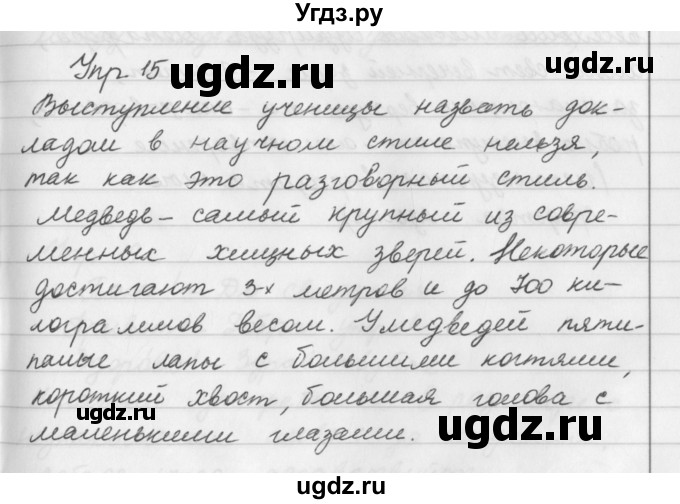 Угдз.ру
Упр 15
ugdz.ru
ugdz.ru
Выступление ученицы назвать док-
ладом в научном стиле нельзя,
ugdz.ru
ugdz.ru
так как это разговорный стиль.
Медведь – самый крупный из совре-
менных хищных зверей. Некоторые
ugdz.ru
достигают 3-х метров и до 700 ки-
лограммов весом. У медведей пяти-
палые лапы с большими когтями,
короткий хвост, большая голова с
ugdz.ru
ugdz.ru
маленькими глазами.
ugdz.ru